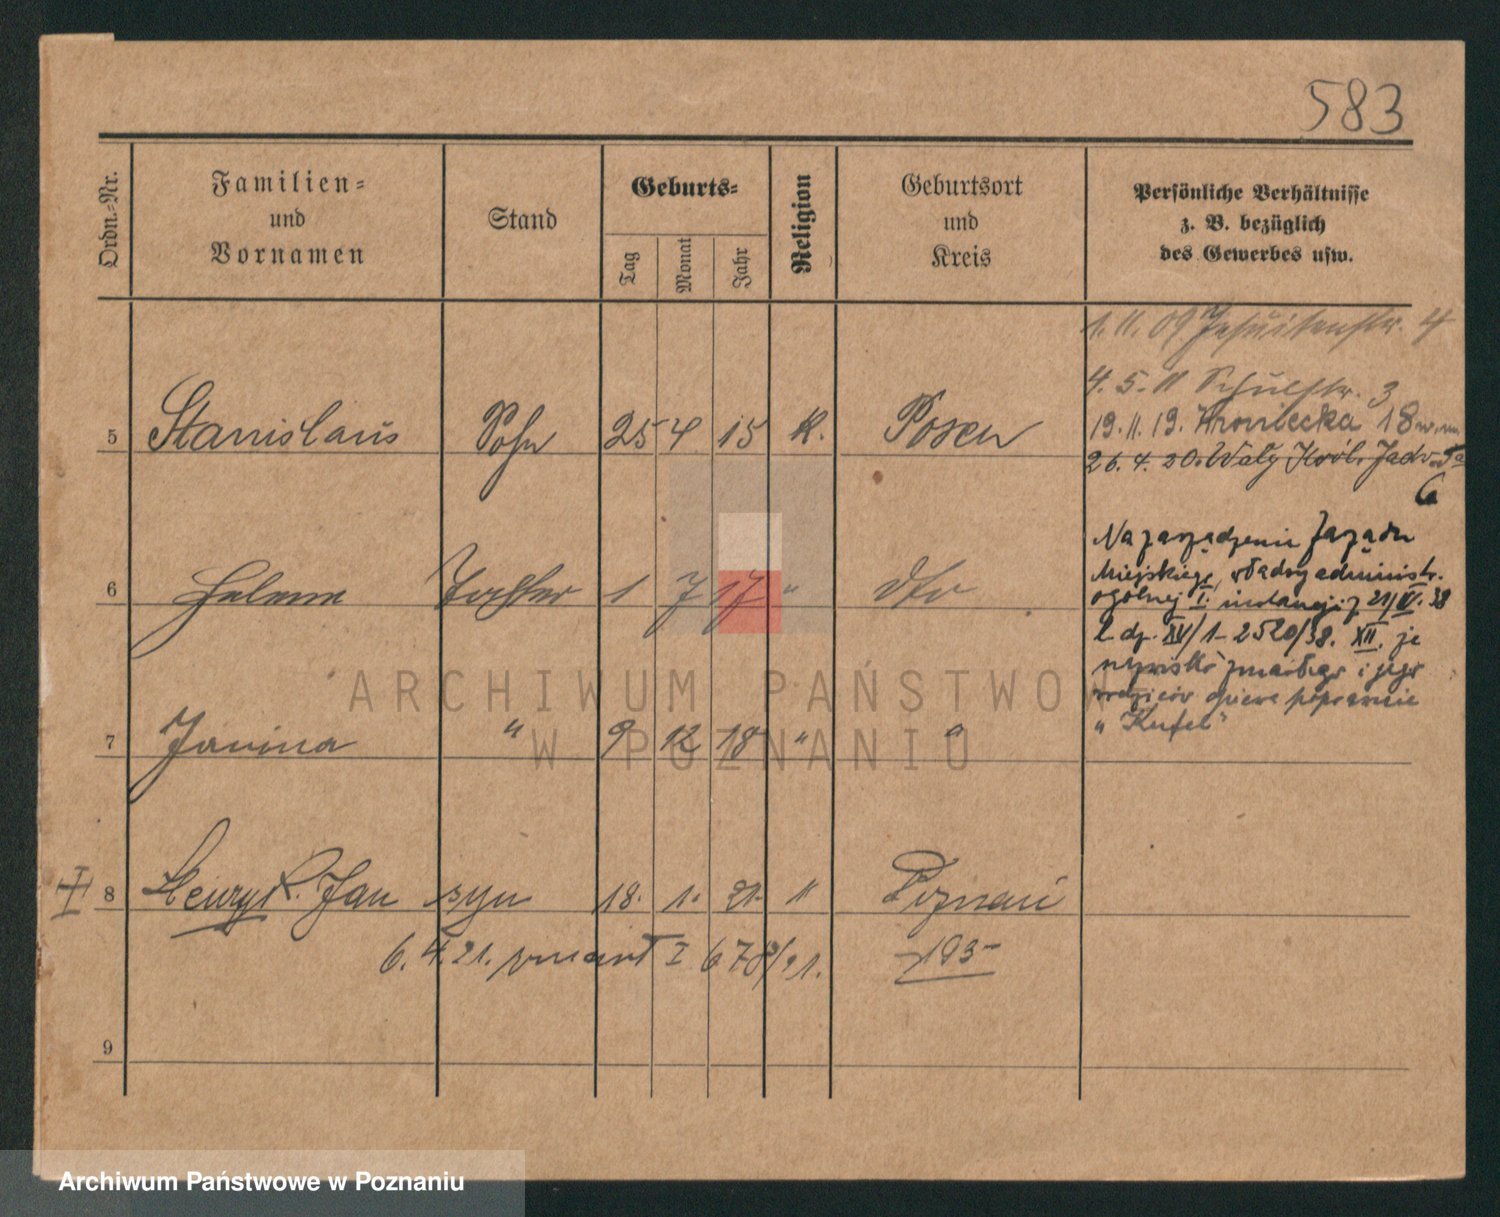 583
Ordn.-Nr.
Familien-
und
Vornamen
Stand
Geburts-
Tag
Monat
Jahr
Religion
Geburtsort
und
Kreis
Persönliche Verhältnisse
z. B. bezüglich
des Gewerbes usw.
1.11.09 Jesuitenstr. 4
4.5.11 Schulstr. 3
5 Stanislaus Sohn 25 4 15 K. Posen
19.11.19. 18
26.4.20. Wały Król. Jadw. 5a
6
6 Helene Tochter 1 7 17 " dto
Na zarządzenie Zarządu
Miejskiego, władzy administr.
ogólnej I. instancji z 21/V. 38
L. dz. XV/1-2520/38. XII. je
nazwisko zmarłego i jego
rodziców opiewa poprawnie
„Kufel"
7 Janina " 9 12 18 " "
8 Henryk Jan syn 18. 1. 21. " Poznań
6.4.21. zmarł I 678/21. -193-
9
ARCHIWUM PAŃSTWOW
W POZNANIU
Archiwum Państwowe w Poznaniu